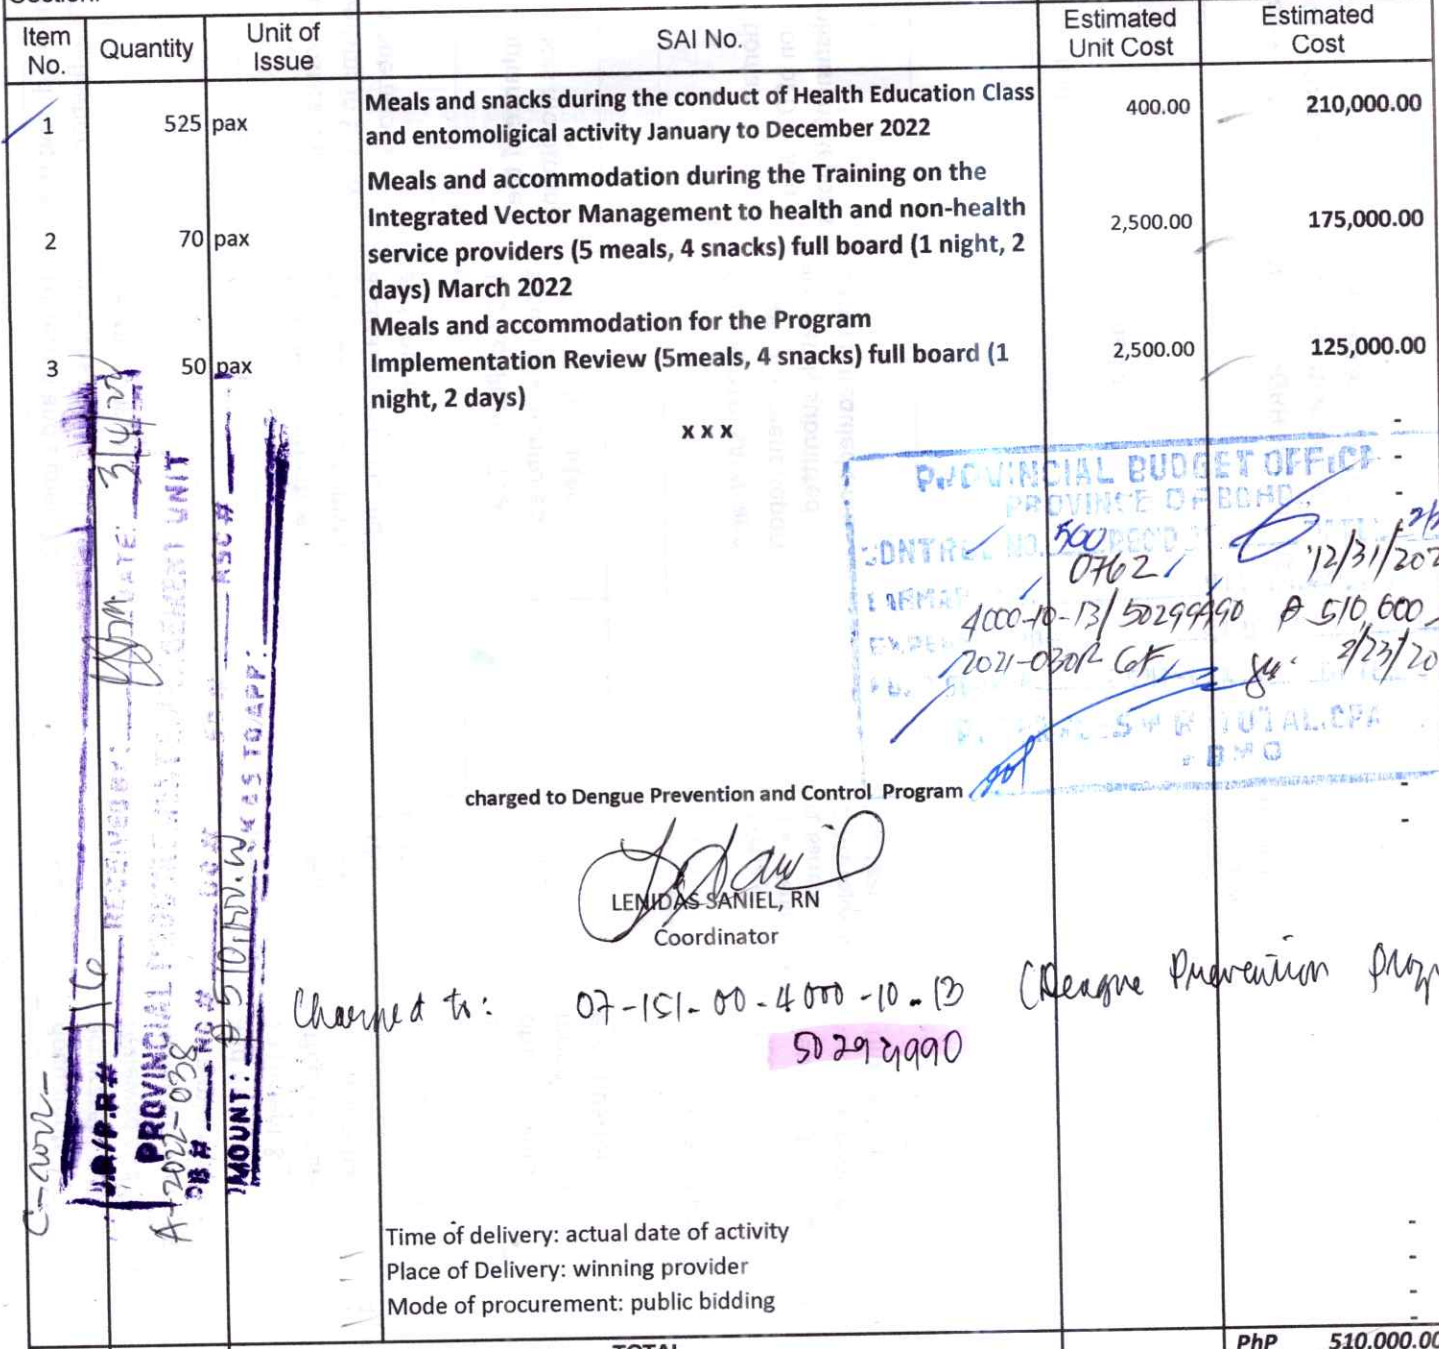 Item No.
Quantity
Unit of Issue
SAI No.
Estimated Unit Cost
Estimated Cost
1 525 pax Meals and snacks during the conduct of Health Education Class 400.00 210,000.00
and entomoligical activity January to December 2022
Meals and accommodation during the Training on the
Integrated Vector Management to health and non-health
2 70 pax service providers (5 meals, 4 snacks) full board (1 night, 2 2,500.00 175,000.00
days) March 2022
Meals and accommodation for the Program
3 50 pax Implementation Review (5meals, 4 snacks) full board (1 2,500.00 125,000.00
night, 2 days)
x x x
PROVINCIAL BUDGET OFFICE
PROVINCE OF BOHO
CONTROL NO. 500 REC'D
0762 12/31/202
4000-10-13/50299990 ₱ 510,000
2/23/20
charged to Dengue Prevention and Control Program
LENIDAS SANIEL, RN
Coordinator
Charged to: 07-151-00-4000-10-13 (Dengue Prevention
50299990
RECEIVED BY: DATE: 3/4/22
J.R/P.R # 116
PROVINCIAL
A-2022-038
AMOUNT:
Time of delivery: actual date of activity
Place of Delivery: winning provider
Mode of procurement: public bidding
TOTAL PhP 510,000.00